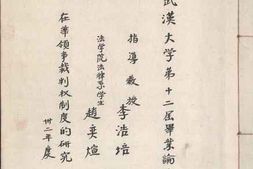 武漢大学第十二屆畢業論
指導教授 李浩培
法学院法律系学生 趙奕煊
在華領事裁判权制度的研究
卅二年度